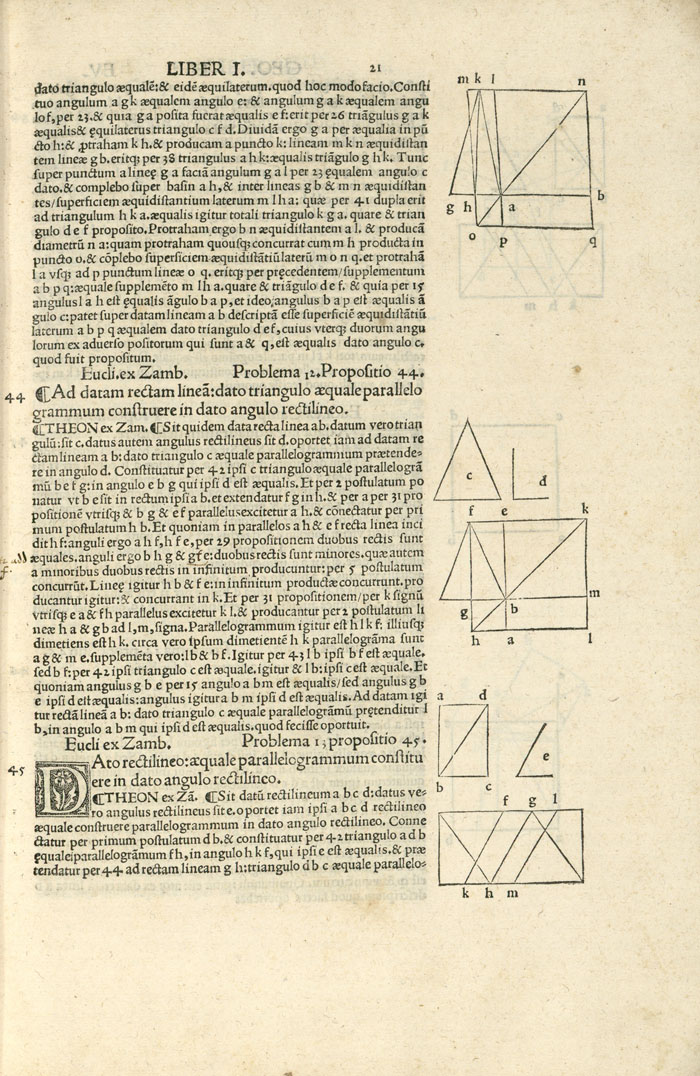 LIBER I. 21
dato triangulo æqualẽ:& eidẽ æquilaterum.quod hoc modo facio.Consti
tuo angulum a g k æqualem angulo e: & angulum g a k æqualem angu
lo f, per 23.& quia g a posita fuerat æqualis e f:erit per 26 triãgulus g a k
æqualis& ęquilaterus triangulo c f d. Diuidã ergo g a per æqualia in pũ
cto h:& ꝓtraham k h.& producam a puncto k: lineam m k n æquidistan
tem lineæ g b.eritq; per 38 triangulus a h k:æqualis triãgulo g h k. Tunc
super punctum a lineę g a faciã angulum g a l per 23 equalem angulo c
dato.& complebo super basin a h,& inter lineas g b & m n æquidistan
tes/superficiem æquidistantium laterum m l h a: quæ per 41 dupla erit
ad triangulum h k a.æqualis igitur totali triangulo k g a. quare & trian
gulo d e f proposito.Protraham ergo b n æquidistantem a l. & producã
diametrũ n a:quam protraham quousq; concurrat cum m h producta in
puncto o.& cõplebo superficiem æquidistãtiũ laterũ m o n q. et protrahã
l a vsq; ad p punctum lineæ o q. eritq; per pręcedentem/supplementum
a b p q:æquale supplemẽto m l h a.quare & triãgulo d e f. & quia per 15
angulus l a h est ęqualis ãgulo b a p, et ideo angulus b a p est æqualis ã
gulo c:patet super datam lineam a b descriptã esse superficiẽ æquidistãtiũ
laterum a b p q æqualem dato triangulo d e f, cuius vterq; duorum angu
lorum ex aduerso positorum qui sunt a & q, est æqualis dato angulo c.
quod fuit propositum.
Eucli.ex Zamb. Problema 12.Propositio 44.
44 ¶Ad datam rectam lineã:dato triangulo æquale parallelo
grammum construere in dato angulo rectilineo.
¶THEON ex Zam. ¶Sit quidem data recta linea ab. datum vero trian
gulũ: sit c. datus autem angulus rectilineus sit d. oportet iam ad datam re
ctam lineam a b: dato triangulo c æquale parallelogrammum prætende⸗
re in angulo d. Constituatur per 42 ipsi c triangulo æquale parallelográ
mũ b e f g: in angulo e b g qui ipsi d est æqualis. Et per 2 postulatum po
natur vt b e sit in rectum ipsi a b. et extendatur f g in h. & per a per 31 pro
positionẽ vtrisq; & b g & e f parallelus excitetur a h. & cõnectatur per pri
mum postulatum h b. Et quoniam in parallelos a h & e f recta linea inci
dit h f: anguli ergo a h f, h f e, per 29 propositionem duobus rectis sunt
æquales. anguli ergo b h g & gfe: duobus rectis sunt minores. quæ autem
a minoribus duobus rectis in infinitum producuntur: per 5 postulatum
concurrũt. Lineę igitur h b & f e: in infinitum productæ concurrunt. pro
ducantur igitur: & concurrant in k. Et per 31 propositionem/per k signũ
vtrisq; e a & fh parallelus excitetur k l. & producantur per 2 postulatum li
neæ h a & gb ad l, m, signa. Parallelogrammum igitur est h l k f: illiusq;
dimetiens est h k. circa vero ipsum dimetientẽ h k parallelogrãma sunt
a g & m e. supplemẽta vero: lb & b f. Igitur per 43 l b ipsi b f est æquale.
sed b f: per 42 ipsi triangulo c est æquale. igitur & l b: ipsi c est æquale. Et
quoniam angulus g b e per 15 angulo a b m est æqualis/sed angulus g b
e ipsi d est æqualis: angulus igitur a b m ipsi d est æqualis. Ad datam igi
tur rectã lineã a b: dato triangulo c æquale parallelogrãmũ prętenditur l
b, in angulo a b m qui ipsi d est æqualis. quod fecisse oportuit.
Eucli ex Zamb. Problema 13 propositio 45.
45 DAto rectilineo: æquale parallelogrammum constitu
ere in dato angulo rectilineo.
¶THEON ex Zã. ¶Sit datũ rectilineum a b c d: datus ve⸗
ro angulus rectilineus sit e. oportet iam ipsi a b c d rectilineo
æquale construere parallelogrammum in dato angulo rectilineo. Conne
ctatur per primum postulatum d b. & constituatur per 42 triangulo a d b
ęquale parallelogrãmum fh, in angulo h k f, qui ipsi e est æqualis. & præ
tendatur per 44 ad rectam lineam g h: triangulo d b c æquale parallelo⸗
m k l n
g h a b
o p q
c d
f e k
g b m
h a l
a d
e
b c
f g l
k h m